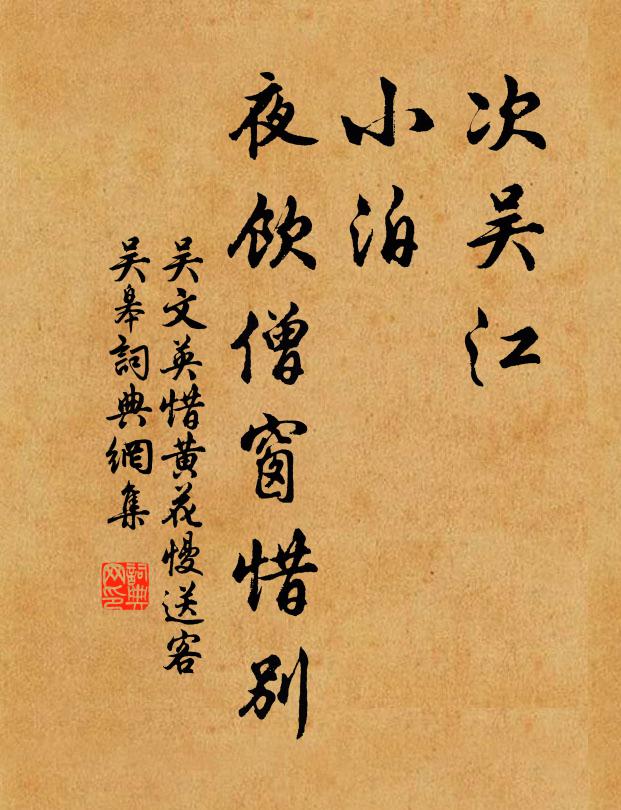 次吴江
小泊
夜飲僧窗惜別
吴文英惜黄花慢送客
吴皋詞典網集
詞典
网印